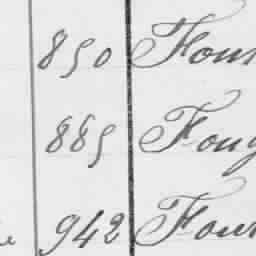 850 Four
885 Foug
942 Four